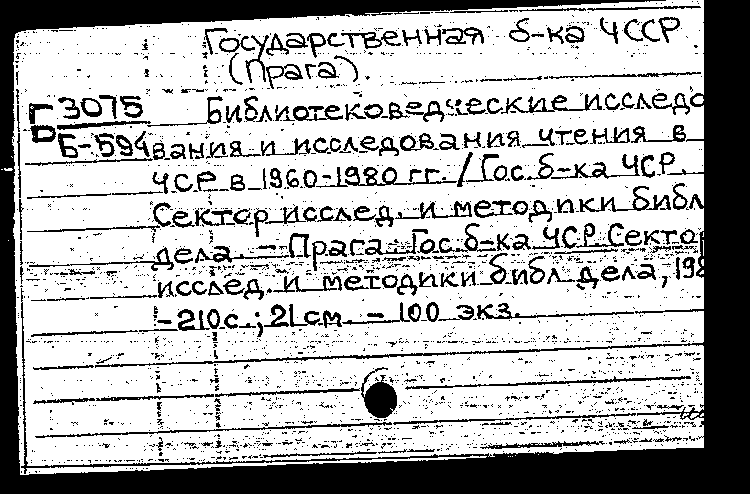 Государственная б-ка ЧССР
(Прага).
Б 3075 Библиотековедческие исследо
Б-594 вания и исследования чтения в
ЧСР в 1960-1980 гг. / Гос. б-ка ЧСР.
Сектор исслед. и методики библ
дела. - Прага: Гос. б-ка ЧСР. Сектор
исслед. и методики библ. дела, 198
-210с.; 21 см. - 100 экз.